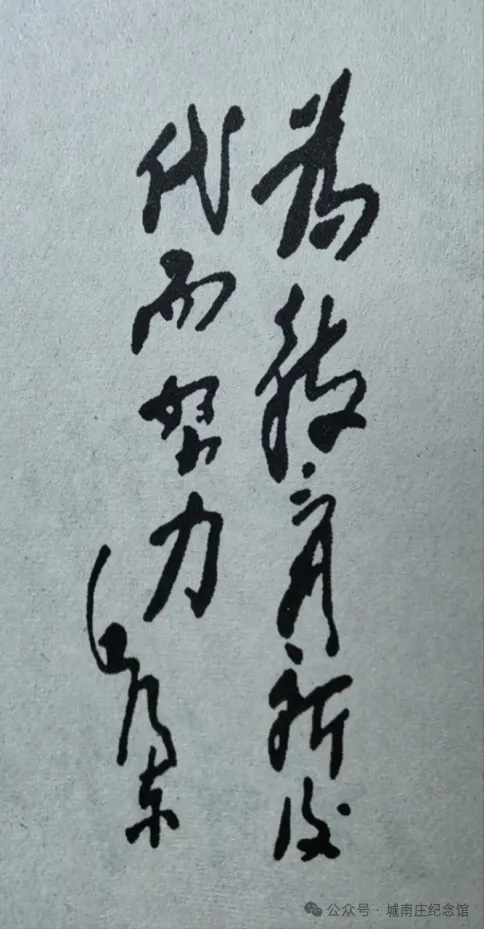 为教育新后
代而努力
毛泽东
公众号·城南庄纪念馆